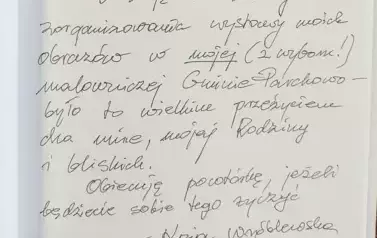 zorganizowania wystawy moich
obrazów w mojej (z wyboru!)
malowniczej Gminie Parchowo -
było to wielkim przeżyciem
dla mnie, mojej Rodziny
i bliskich.
Obiecuję powtórkę, jeżeli
będziecie sobie tego życzyć
Wróblewska